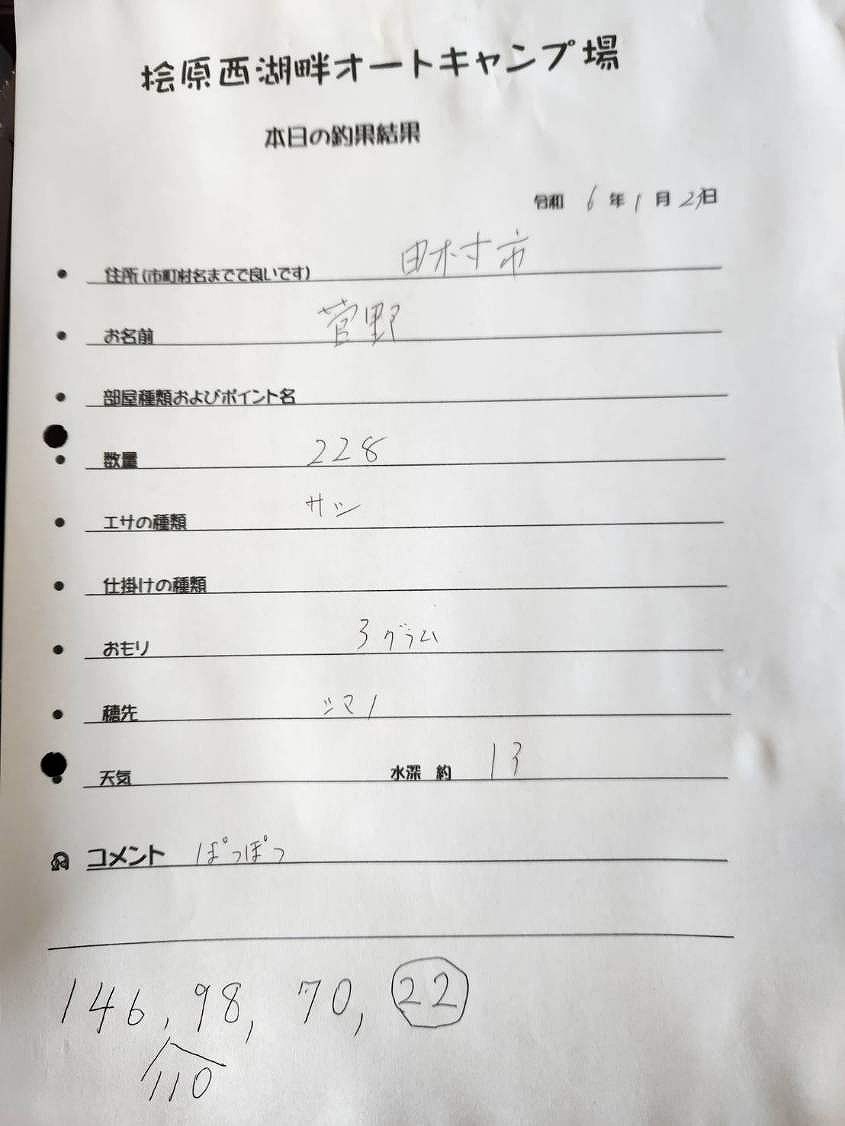 桧原西湖畔オートキャンプ場
本日の釣果結果
令和 6 年 1 月 23日
住所(市町村名までで良いです) 田村市
お名前 菅野
部屋種類およびポイント名
数量 228
エサの種類 サシ
仕掛けの種類
おもり 3グラム
穂先 シマノ
天気 水深 約 13
コメント ぽつぽつ
146, 98, 70, 22
110